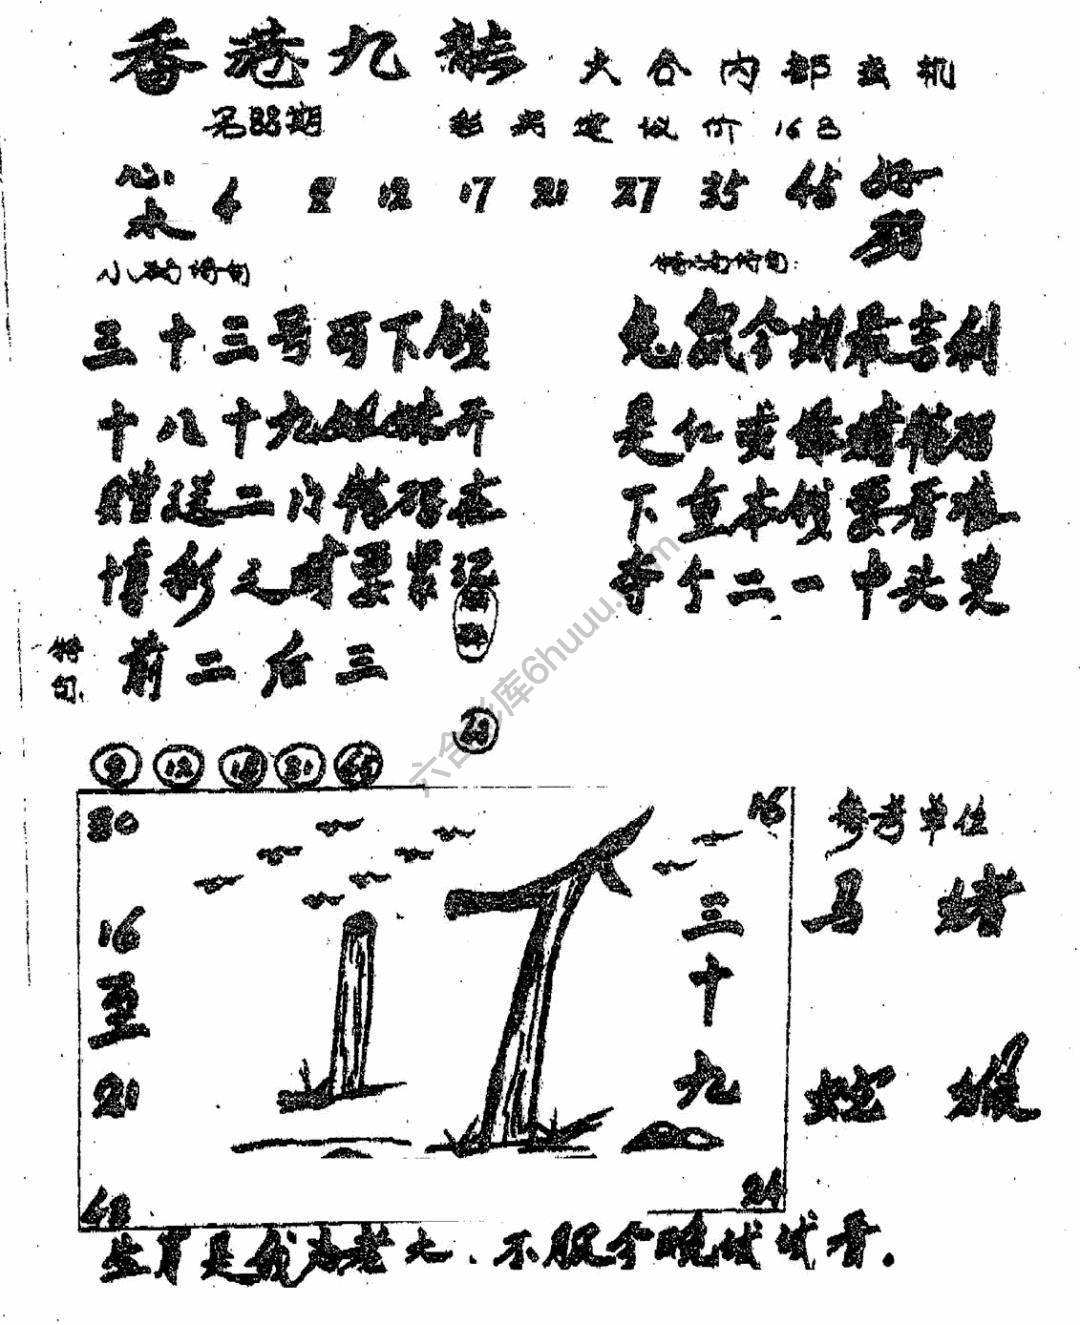 香港九龙 六合内部玄机
另88期 彩票建议价16名
心水 4 8 12 17 21 27 35 估 好码
小码诗句 特码诗句
三十三号可下钱
十八十九姐妹开
赠送二门特码在
博彩之时要紧张
兔鼠今期最吉利
下重本钱要看准
夺个二一中头奖
特句 前二后三
9 12 18 31 45
30
16
16至21
三十九
参考单位
马 猪
蛇 猴
43
24
生肖是我为老大、不服今晚试试看.
六合彩库6huuu.com